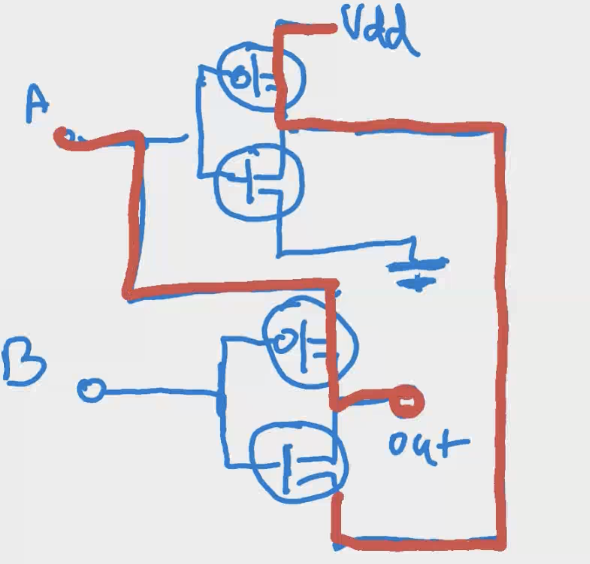 Vdd
A
B
out